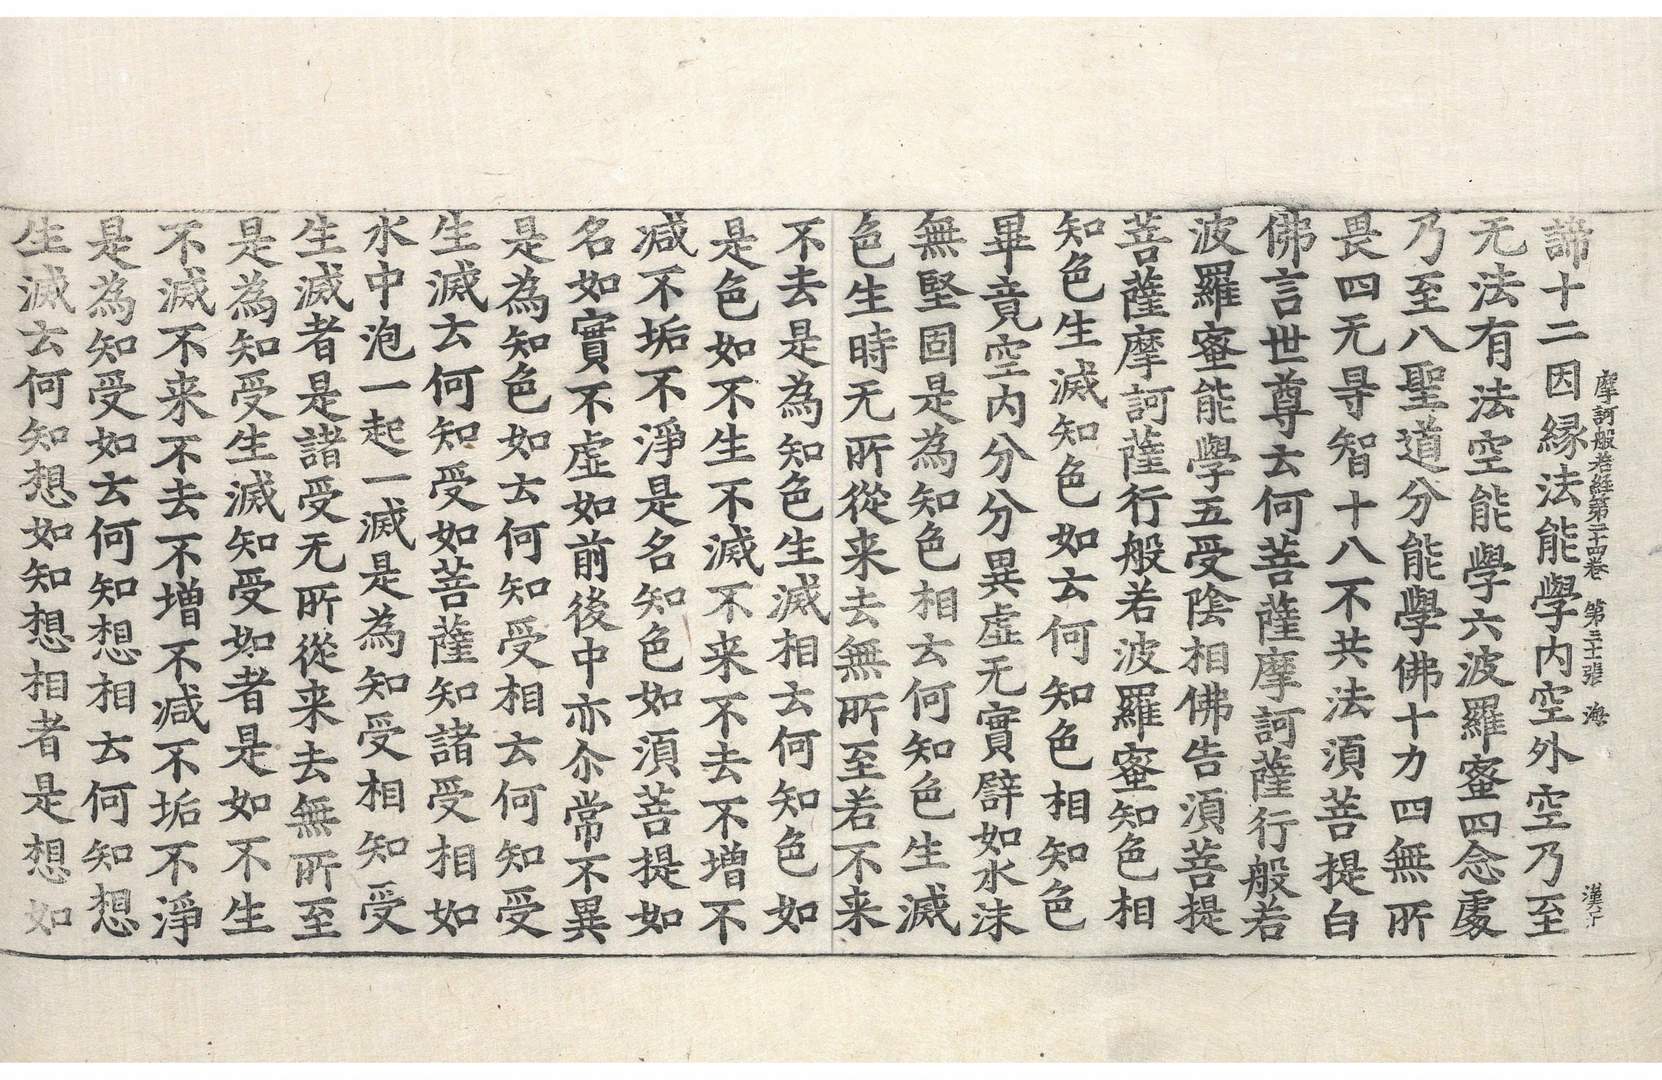 摩訶般若經第二十四卷 第三十張 海 漢
諦十二因縁法能學内空外空乃至
无法有法空能學六波羅蜜四念處
乃至八聖道分能學佛十力四無所
畏四无㝵智十八不共法須菩提白
佛言世尊云何菩薩摩訶薩行般若
波羅蜜能學五受陰相佛告須菩提
菩薩摩訶薩行般若波羅蜜知色相
知色生滅知色如云何知色相知色
畢竟空内分分異虛无實譬如水沫
無堅固是為知色相云何知色生滅
色生時无所從来去無所至若不来
不去是為知色生滅相云何知色如
是色如不生不滅不来不去不增不
减不垢不淨是名知色如須菩提如
名如實不虛如前後中亦尒常不異
是為知色如云何知受相云何知受
生滅云何知受如菩薩知諸受相如
水中泡一起一滅是為知受相知受
生滅者是諸受无所從来去無所至
是為知受生滅知受如者是如不生
不滅不来不去不增不减不垢不淨
是為知受如云何知想相云何知想
生滅云何知想如知想相者是想如